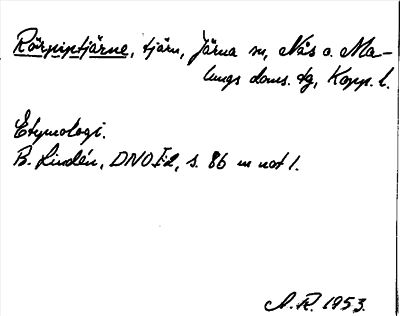 Rörpiptjärne, tjärn, Järna sn, Nås o. Ma-
lungs doms. tg, Kopp. l.
Etymologi.
B. Lindén, DNOI:2, s. 86 m not 1.
A. R. 1953.